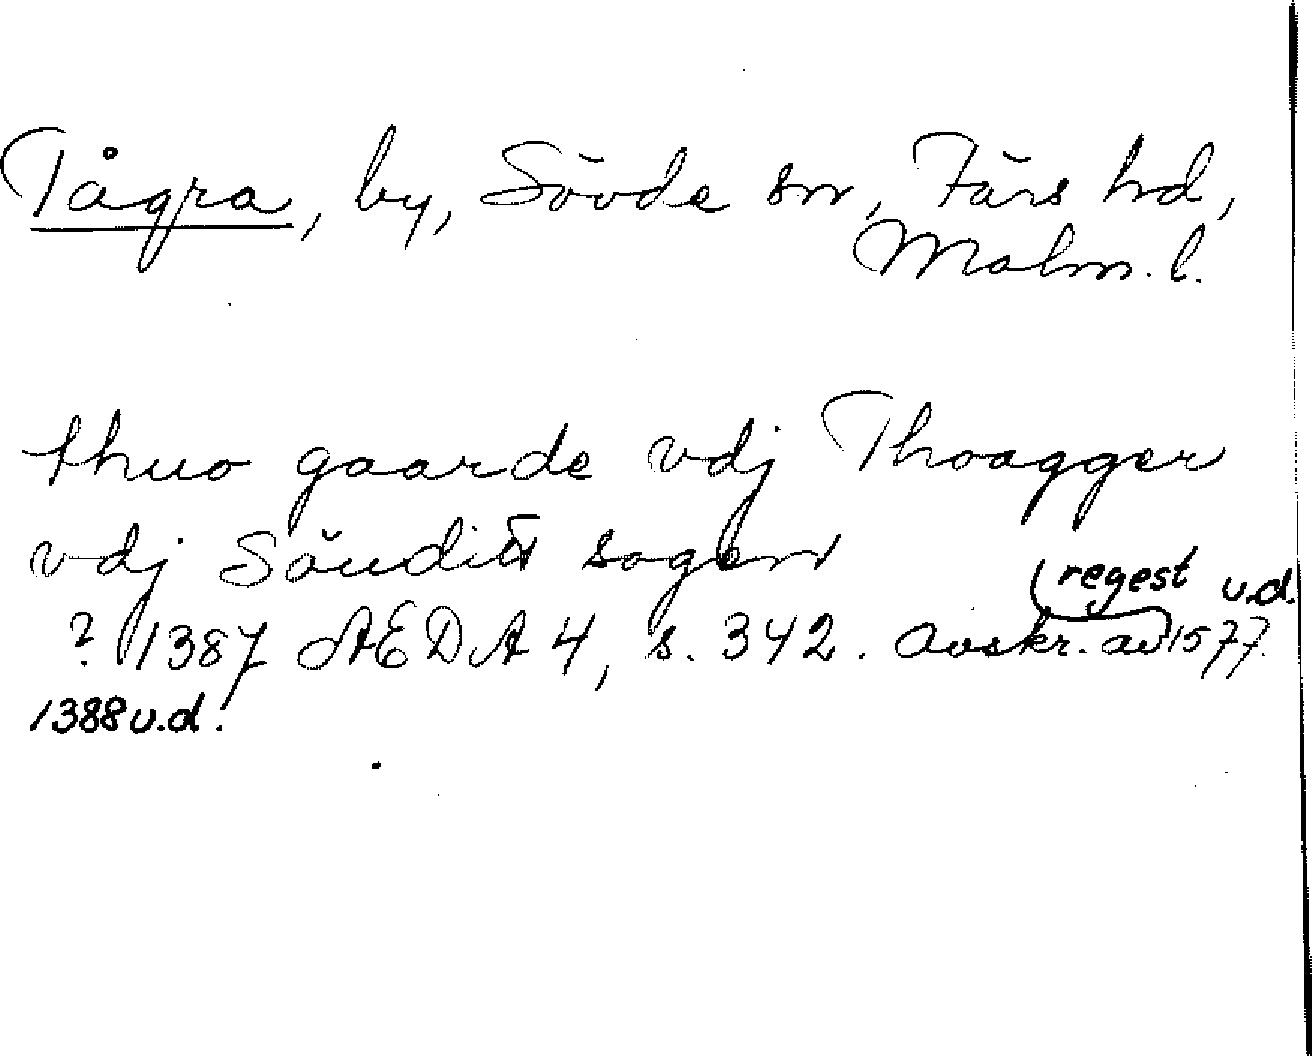 Tågra, by, Sövde sn, Färs hd,
Malm. l.
thuo gaarde vdj Thoagger
vdj Söuditt sogen
(regest u.d.
? 1387 AEDA 4, s. 342. Avskr. av 1577.
1388 u.d.